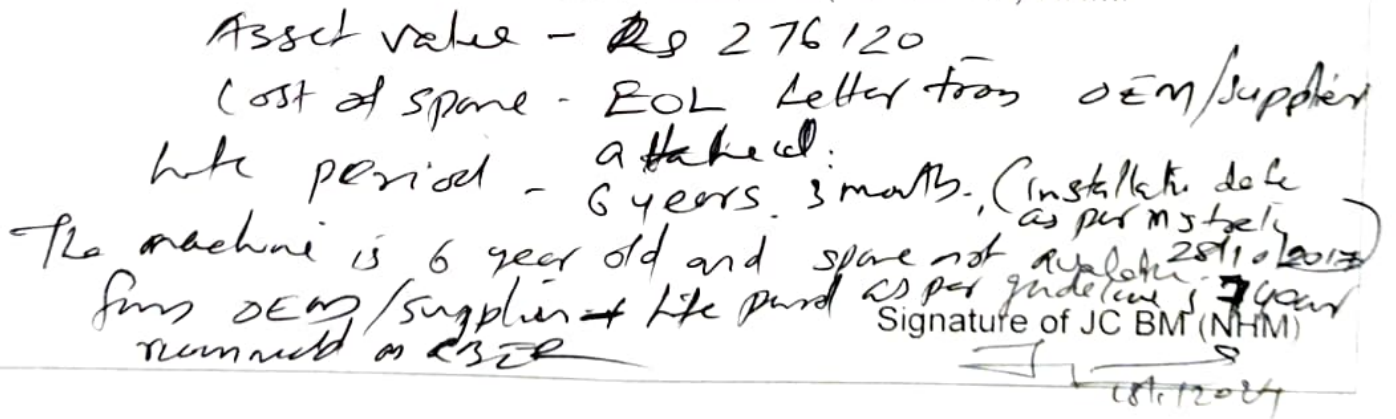 Asset value - Rs 276120
Cost of spare - EOL Letter from OEM/Supplier
attached.
Life period - 6 years. 3 months. (installatn date
as per
28/10/2017)
The machine is 6 year old and spare not
from OEM/Supplier Life period as per guideline is 7 year
Signature of JC BM (NHM)